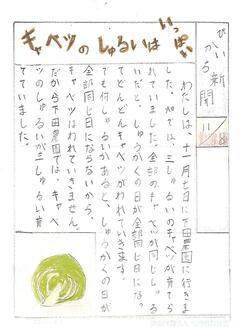 キャベツのしゅるいはいっぱい
ぴかいち新聞
11/18
わたしは、十一月七日に下田農園に行きま
した。畑では、三しゅるいのキャベツが育てら
れていました。全部のキャベツが同じしゅる
いだと、しゅうかくの日が全部同じ日になっ
てどんどんキャベツがわれていきます。
でも何しゅるいかあると、しゅうかくの日が
全部同じ日にならないから、
キャベツはわれていきません。
だから下田農園では、キャベ
ツのしゅるいが三しゅるい育
てていました。